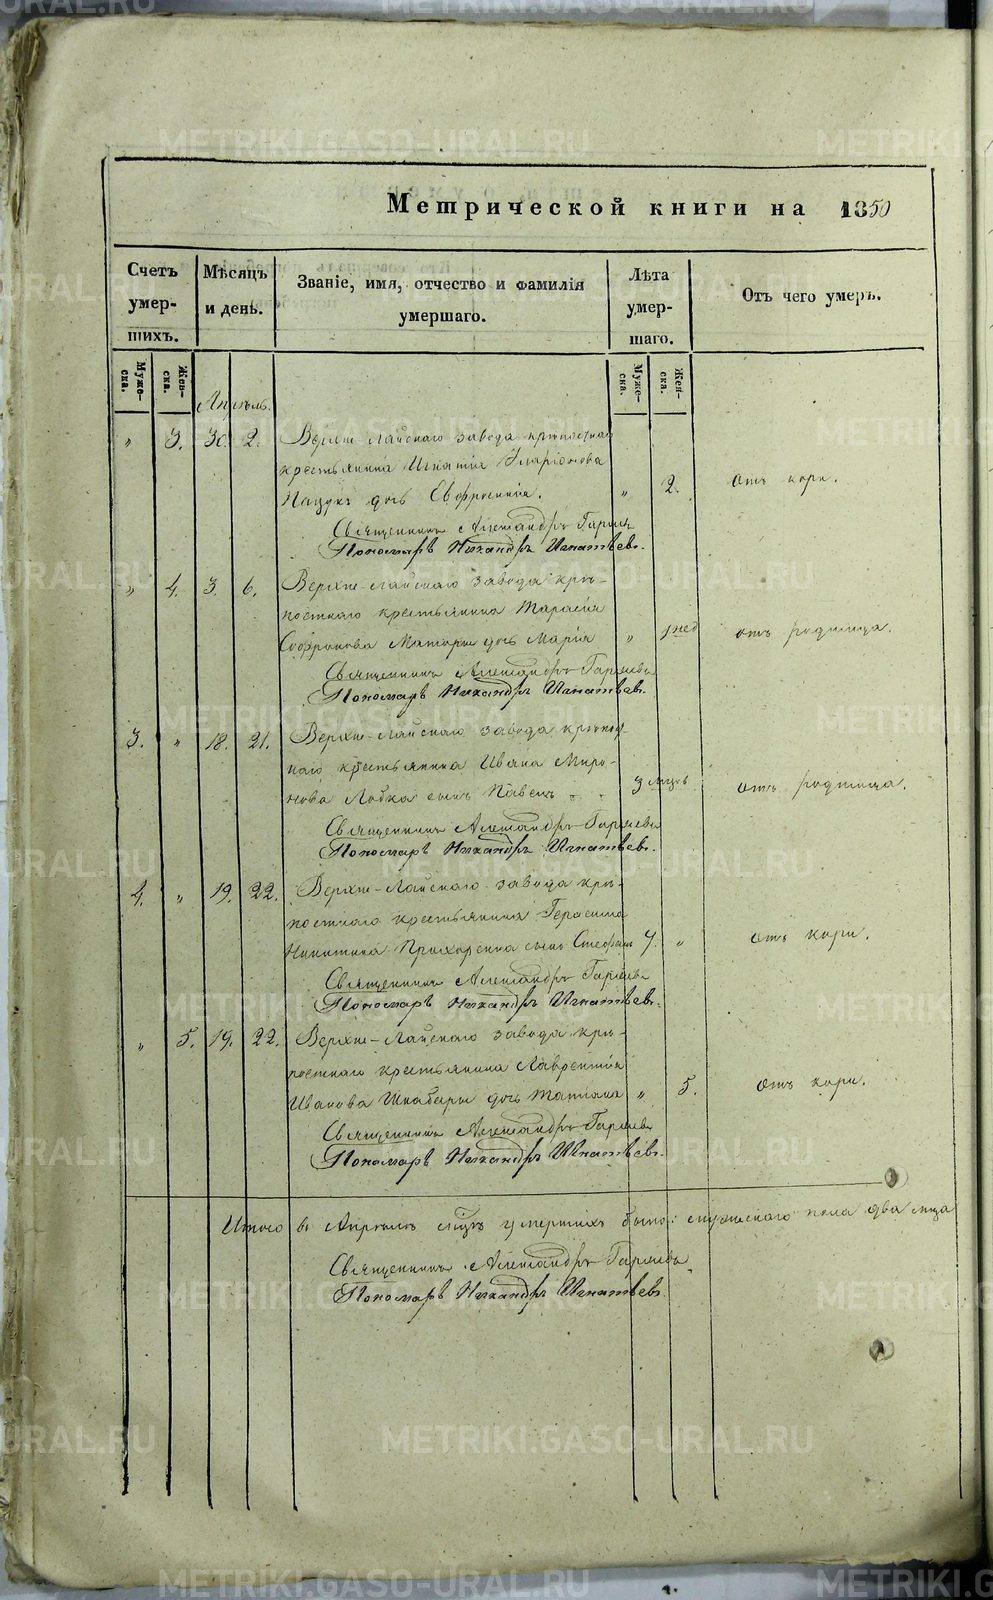 METRIKI.GASO-URAL.RU
Метрической книги на 1850
Счетъ умер-шихъ.
Мѣсяцъ и день.
Званіе, имя, отчество и фамилія умершаго.
Лѣта умер-шаго.
Отъ чего умеръ.
Муже-ска.
Жен-ска.
Муже-ска.
Жен-ска.
Апрѣль.
" 3. 30. 2. Верхне-Лайскаго завода крѣпостнаго
крестьянина Игнатія Иларіонова
дочь Евфросинія. " 2. отъ кори.
Священникъ Александръ Гаряевъ
Пономарь Никандръ Игнатьевъ.
" 4. 3. 6. Верхне-Лайскаго завода крѣ-
постнаго крестьянина Тарасія
Софронова дочь Марія " 1 нед отъ родимца.
Священникъ Александръ Гаряевъ
Пономарь Никандръ Игнатьевъ.
3. " 18. 21. Верхне-Лайскаго завода крѣпост-
наго крестьянина Ивана Миро-
нова Лобка сынъ Павелъ " " 3 мѣсцъ отъ родимца.
Священникъ Александръ Гаряевъ
Пономарь Никандръ Игнатьевъ.
4. " 19. 22. Верхне-Лайскаго завода крѣ-
постнаго крестьянина Герасима
Никитина Прихоренка сынъ Стефанъ 4. " отъ кори.
Священникъ Александръ Гаряевъ
Пономарь Никандръ Игнатьевъ.
" 5. 19. 22. Верхне-Лайскаго завода крѣ-
постнаго крестьянина Лаврентія
Иванова Шкабары дочь Татіана " 5. отъ кори.
Священникъ Александръ Гаряевъ
Пономарь Никандръ Игнатьевъ.
Итого въ Апрѣлѣ мцѣ умершихъ было: мужескаго пола два лица
Священникъ Александръ Гаряевъ
Пономарь Никандръ Игнатьевъ